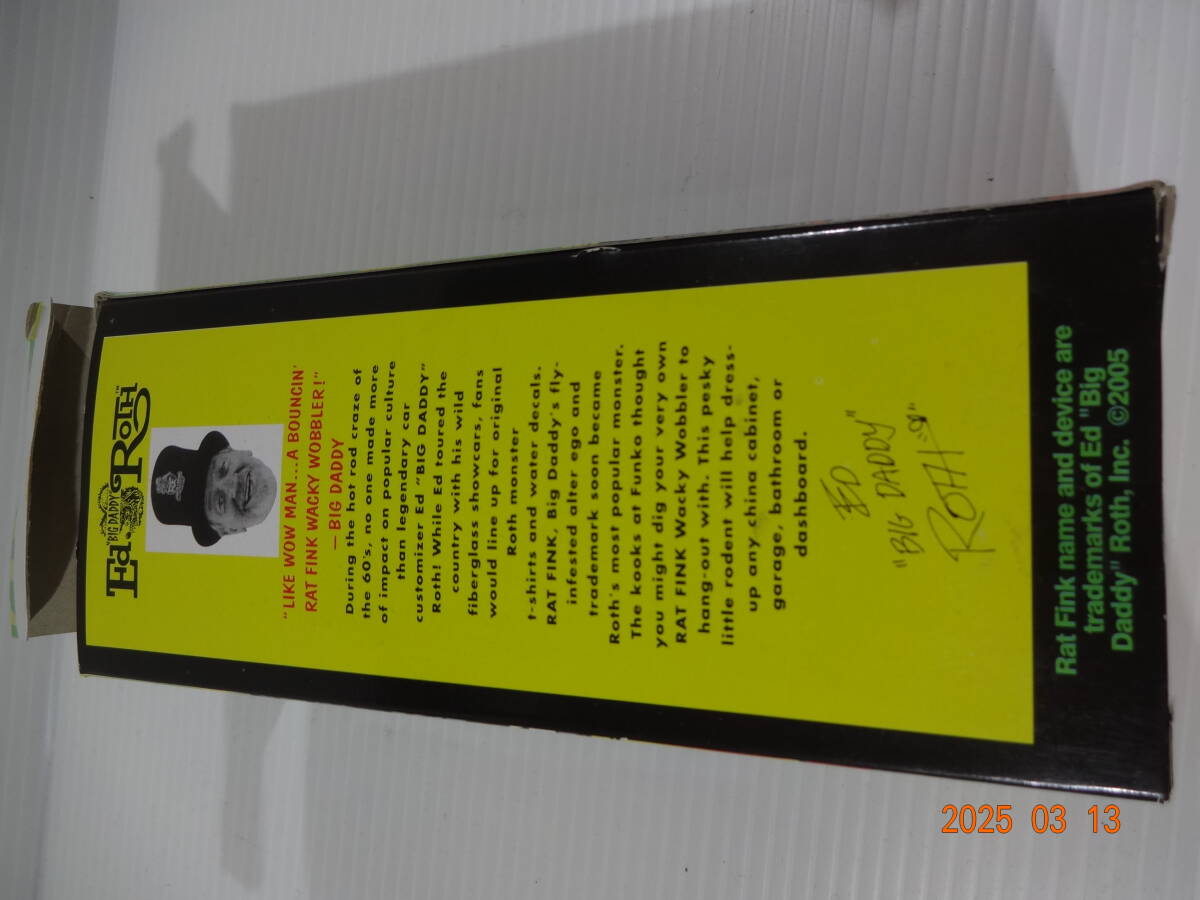 Ed "BIG DADDY" ROTH™
"LIKE WOW MAN...A BOUNCIN'
RAT FINK WACKY WOBBLER!"
— BIG DADDY
During the hot rod craze of
the 60's, no one made more
of impact on popular culture
than legendary car
customizer Ed "BIG DADDY"
Roth! While Ed toured the
country with his wild
fiberglass showcars, fans
would line up for original
Roth monster
t-shirts and water decals.
RAT FINK, Big Daddy's fly-
infested alter ego and
trademark soon became
Roth's most popular monster.
The kooks at Funko thought
you might dig your very own
RAT FINK Wacky Wobbler to
hang-out with. This pesky
little rodent will help dress-
up any china cabinet,
garage, bathroom or
dashboard.
ED
"BIG DADDY"
ROTH
Rat Fink name and device are
trademarks of Ed "Big
Daddy" Roth, Inc. ©2005
2025 03 13